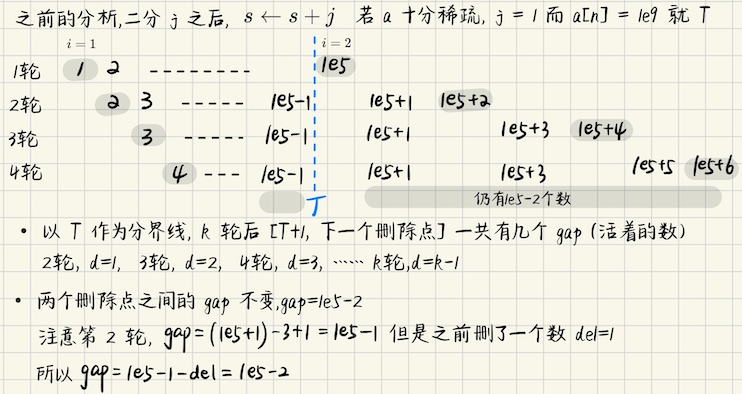 之前的分析,二分 j 之后, s ← s + j 若 a 十分稀疏, j = 1 而 a[n] = 1e9 就 T
i = 1 i = 2
1轮 1 2 -------- 1e5
2轮 2 3 ----- 1e5-1 1e5+1 1e5+2
3轮 3 ----- 1e5-1 1e5+1 1e5+3 1e5+4
4轮 4 --- 1e5-1 1e5+1 1e5+3 1e5+5 1e5+6
T 仍有1e5-2个数
• 以 T 作为分界线, k 轮后 [T+1, 下一个删除点] 一共有几个 gap (活着的数)
2轮, d=1, 3轮, d=2, 4轮, d=3, …… k轮,d=k-1
• 两个删除点之间的 gap 不变,gap=1e5-2
注意第 2 轮, gap=(1e5+1)-3+1=1e5-1 但是之前删了一个数 del=1
所以 gap=1e5-1-del=1e5-2